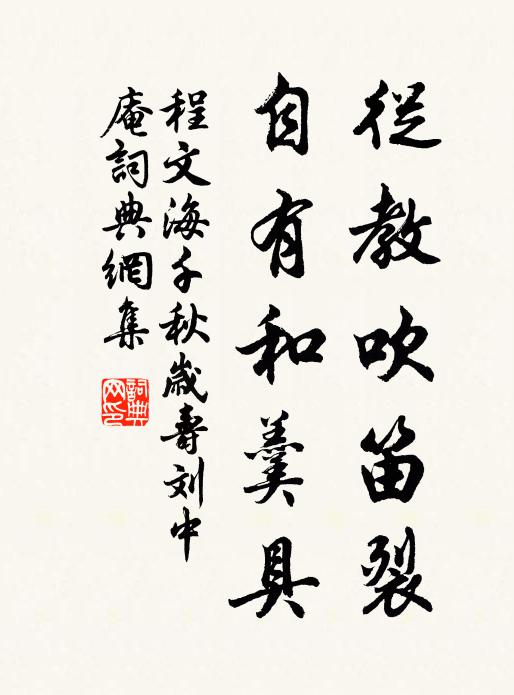 從教吹笛裂
自有和羹具
程文海千秋歲壽刘中
庵詞典網集
詞典
网印